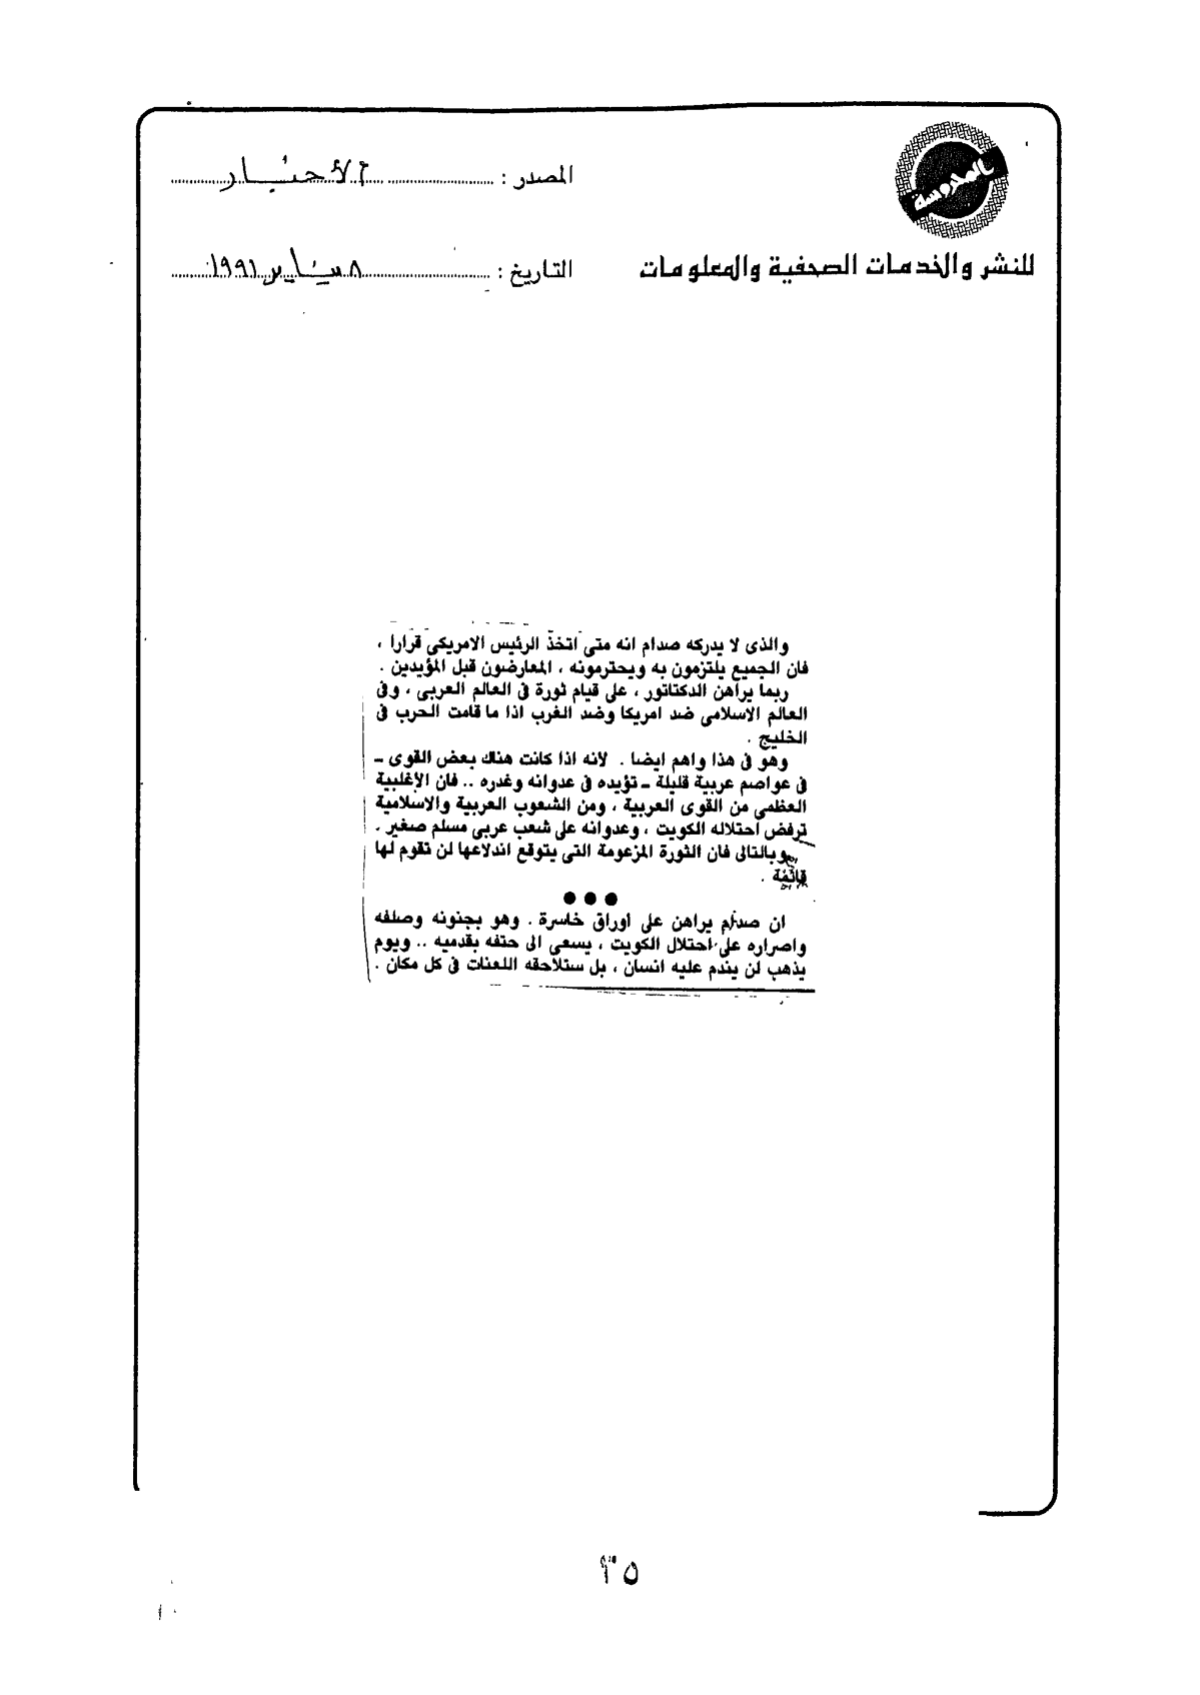 المحروسة
للنشر والخدمات الصحفية والمعلومات
المصدر : الأخبار
التاريخ : ٨ يناير ١٩٩١
والذى لا يدركه صدام انه متى اتخذ الرئيس الامريكى قرارا ،
فان الجميع يلتزمون به ويحترمونه ، المعارضون قبل المؤيدين .
ربما يراهن الدكتاتور ، على قيام ثورة فى العالم العربى ، وفى
العالم الاسلامى ضد امريكا وضد الغرب اذا ما قامت الحرب فى
الخليج .
وهو فى هذا واهم ايضا . لانه اذا كانت هناك بعض القوى ـ
فى عواصم عربية قليلة ـ تؤيده فى عدوانه وغدره .. فان الاغلبية
العظمى من القوى العربية ، ومن الشعوب العربية والاسلامية
ترفض احتلاله الكويت ، وعدوانه على شعب عربى مسلم صغير .
وبالتالى فان الثورة المزعومة التى يتوقع اندلاعها لن تقوم لها
قائمة .
●●●
ان صدام يراهن على اوراق خاسرة . وهو بجنونه وصلفه
واصراره على احتلال الكويت ، يسعى الى حتفه بقدميه .. ويوم
يذهب لن يندم عليه انسان ، بل ستلاحقه اللعنات فى كل مكان .